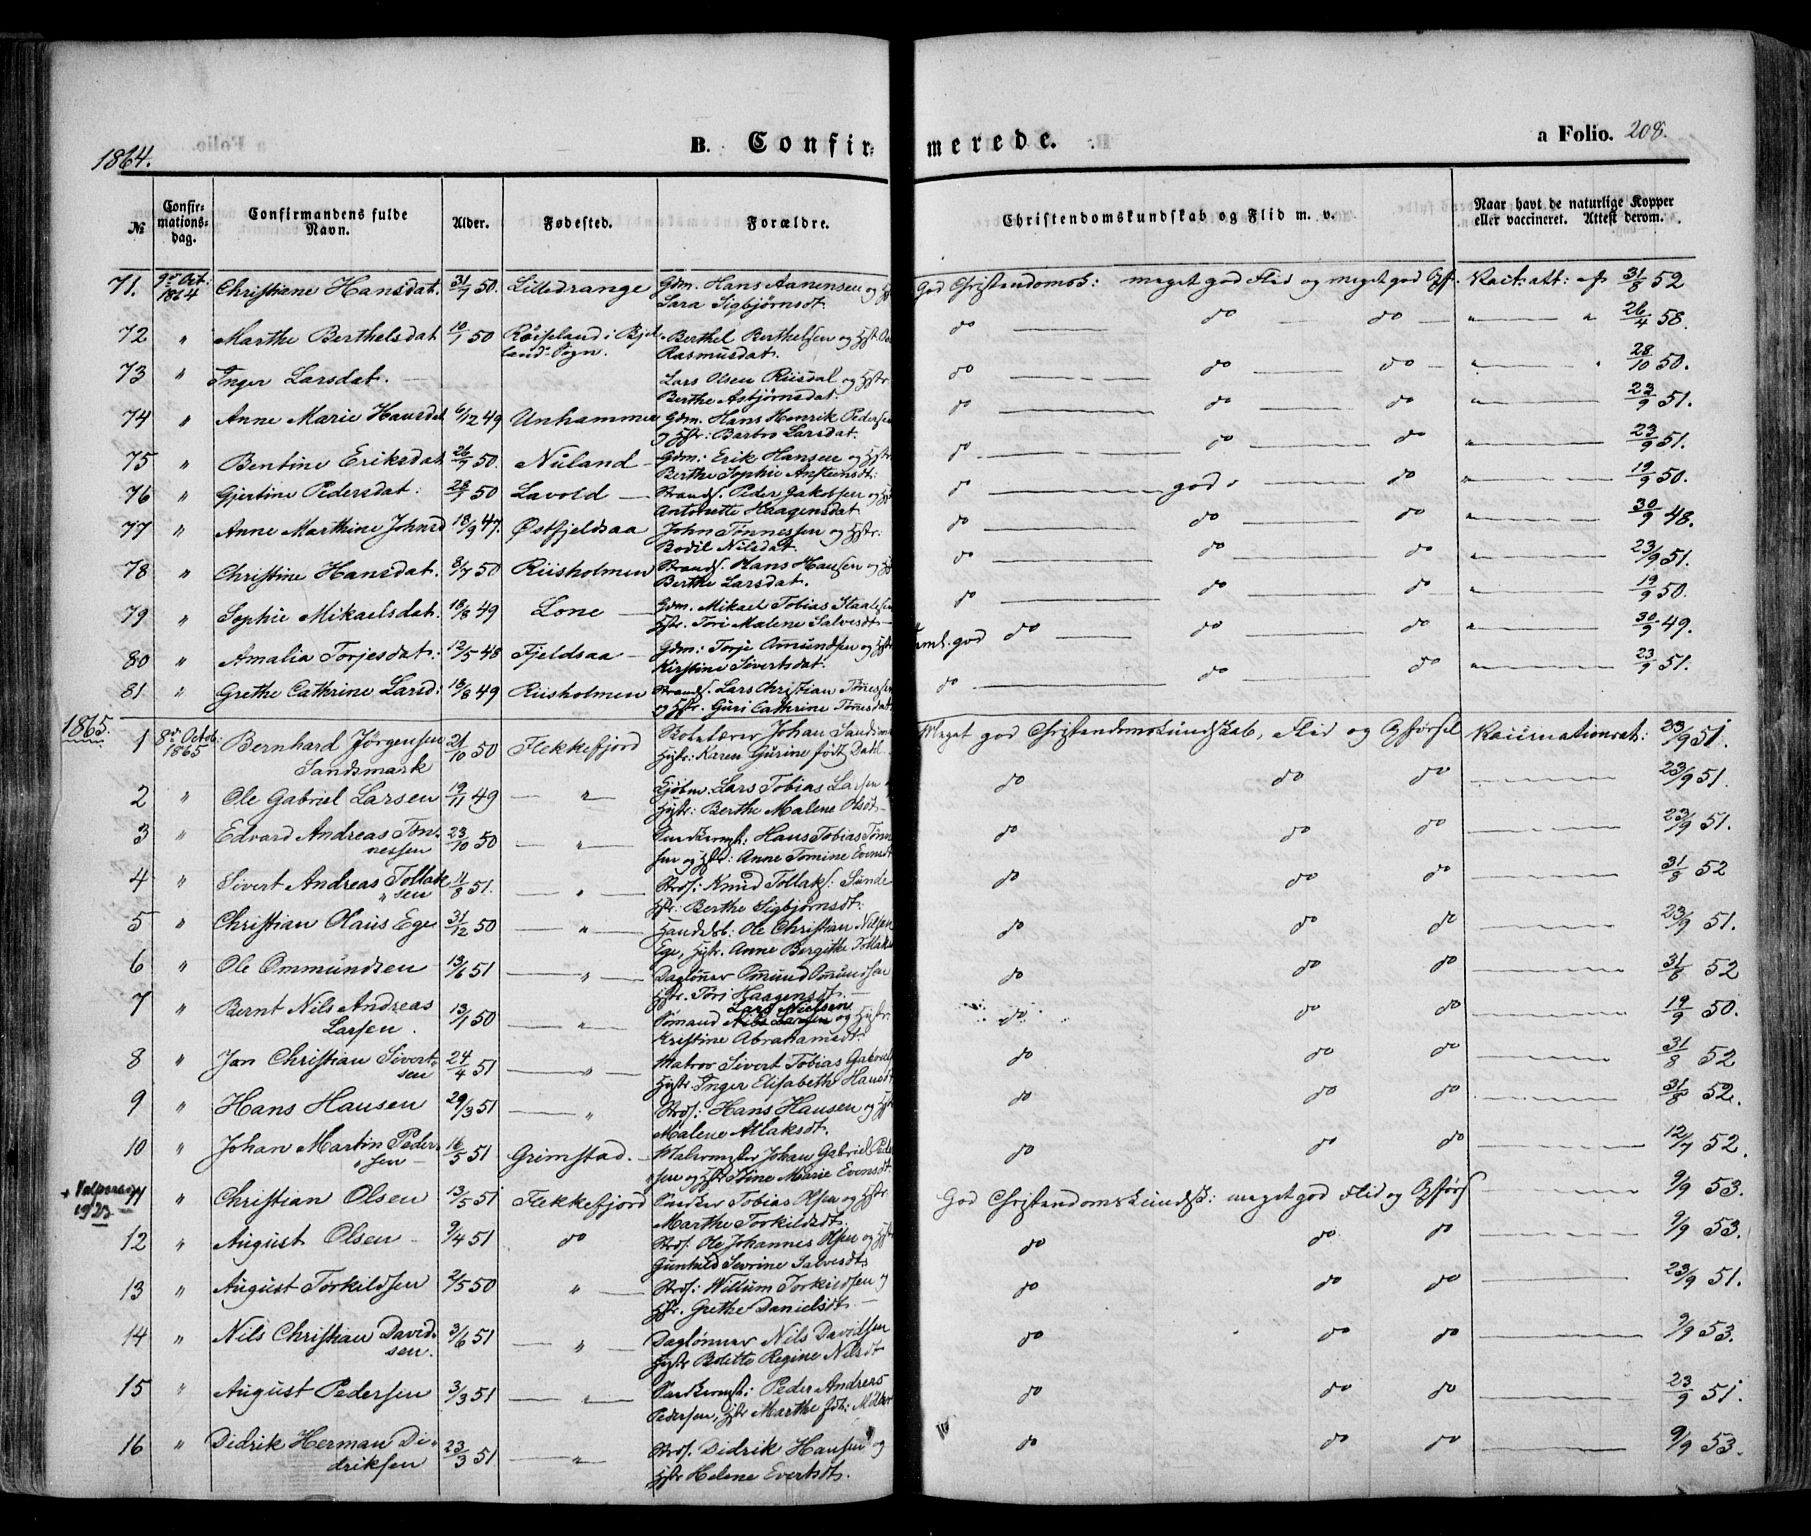 1864.
B. Confirmerede.
a Folio. 208.
№
Confirmationsdag.
Confirmandens fulde Navn.
Alder.
Fødested.
Forældre.
Christendomskundskab og Flid m. v.
Naar havt de naturlige Kopper eller vaccineret. Attest derom.
71. 9de Oct: 1864 Christiane Hansdat. 31/7 50. Lilledrange Gdm. Hans Aanensen og Sara Sigbjørnsdt. God Christendomsk: meget god Flid og meget god Opf. Vacc: att: af 31/8 52
72 " Marthe Berthelsdat 10/1 50 Røiseland i Bjellands Sogn. Berthel Berthelsen og Hst Rasmusdat. do do do " " 26/4 58.
73 " Inger Larsdat. Lars Olsen Riisdal og Hstr Berthe Asbjørnsdat. do do do " 28/10 50.
74 " Anne Marie Hansdat 6/12 49 Unhammer Gdm. Hans Henrik Pedersen og Hstr: Barbro Larsdat. do do do " 23/9 51.
75 " Bentine Eriksdat 26/7 50. Nuland Gdm: Erik Hansen og Hstr Berthe Sophie do do do " 23/9 51.
76 " Gjertine Pedersdat: 28/7 50 Lavold Strands. Peder Jakobsen og Antonette Haagensdat do god do " 19/9 50.
77 " Anne Marthine Johnsd 18/9 47. Østfjeldsaa John Tønnessen og Hstr: Bodil Nilsdat. do do do " 30/9 48.
78 " Christine Hansdat. 8/7 50 Riisholmen Strands. Hans Hansen og Berthe Larsdat. do do do " 23/9 51.
79 " Sophie Mikaelsdat. 18/8 49 Lone Gdm. Mikael Tobias Hstr. Tori Malene Salvesdt do do do " 19/9 50.
80 " Amalia Torjesdat. 12/5 48 Fjeldsaa Gdm: Torje Omundsen og Hstr Kirstine Sivertsdat. god do do do " 30/9 49.
81 " Grethe Cathrine Larsd: 18/8 49 Riisholmen Strands. Lars Christian Tønnessen og Hstr. Guri Cathrine Tønnesdat do do do " 23/9 51.
1865.
1 8de Octob: 1865 Bernhard Jørgensen Sandsmark 21/10 50 Flekkefjord Skolelærer Johan Hstr: Karen Gurine født Dahl Meget god Christendomskundskab, Flid og Opførsel Vaccinationsat: 23/9 51.
2 " Ole Gabriel Larsen 19/11 49 " Kjøbm. Lars Tobias Larsen Hstr: Berthe Malene Olsdt do do do 23/9 51.
3 " Edvard Andreas Tønnessen 23/10 50 " Hans Tobias Tønnessen og Hstr: Anne Tomine Evensdt do do do 23/9 51.
4 " Sivert Andreas Tollaksen 11/8 51. " Strds: Knud Tollaks: Sunde Hstr: Berthe Sigbjørnsdt: do do do 31/8 52
5 " Christian Olaus Ege 31/12 50 " Handelsb: Ole Christian Nilsen Ege, Hstr. Anne Birgitte Tollaks do do do 23/9 51.
6 " Ole Ommundsen 13/6 51 " Daglønner Omund Omundsen Hstr. Tori Haagensdt. do do do 31/8 52
7 " Bernt Nils Andreas Larsen. 13/1 50 " Lars Nielsen Sømand Nils Larsen og Hstr: Kristine Abrahamsdt. do do do 19/9 50.
8 " Jan Christian Sivertsen 24/4 51 " Matros Sivert Tobias Gabriel Hstr: Inger Elisabeth Hansdt do do do 31/8 52
9 " Hans Hansen 29/3 51 " Strds: Hans Hansen og Malene Atlaksdt. do do do 31/8 52.
10 " Johan Martin Pedersen 16/5 51 Grimstad. Malermester Johan Gabriel Pedersen og Hstr Stine Marie Evensdt. do do do 12/7 52.
+ Valparaiso 1923
11 " Christian Olsen 13/5 51 Flekkefjord Tobias Olsen og Hstr Marthe Torkildsdt: God Christendomskundsk: meget god Flid og Opførs 9/9 53.
12 " August Olsen 9/4 51 do Strds: Ole Johannes Olsen og Hstr Gunhild Sevrine Salvesdt do do do 9/9 53.
13 " August Torkildsen 2/5 50 " Strds: Willum Torkildsen og Hstr. Grethe Danielsdt do do do 23/9 51.
14 " Nils Christian Davidsen. 3/6 51 " Daglønner Nils Davidsen Hstr Bolette Regine Nilsdt do do do 9/9 53.
15 " August Pedersen 3/3 51 " Peder Andreas Pedersen, Hstr Marthe do do do 23/9 51.
16 " Didrik Herman Didriksen 23/3 51 " Strds. Didrik Hansen og Hstr Helene Evertsdt. do do do 9/9 53.